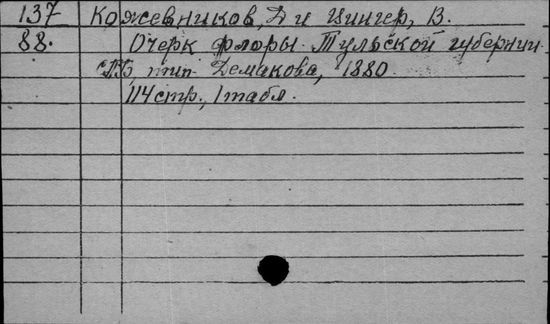 137 Кожевников, Д и Цингер, В.
88. Очерк флоры Тульской губернии.
СПБ, тип. Демакова, 1880.
114 стр., 1 табл.